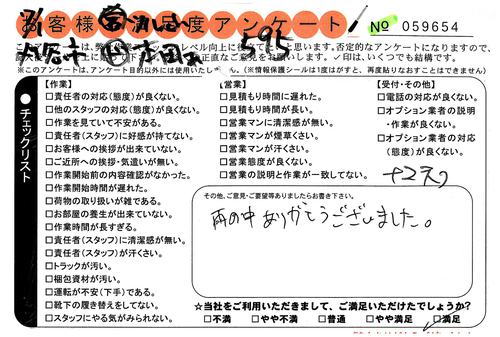 お客様満足度アンケート
№ 059654
7/1
595
このアンケートは、
レベル向上に
思います。否定的なアンケートになりますので、
正直なご意見をお願いします。✓印は、いくつでも結構です。
※このアンケートは、アンケート目的以外には使用いたしません。(※情報保護シールは1度はがすと、再度貼りなおすことはできません)
チェックリスト
【作業】
□責任者の対応(態度)が良くない。
□他のスタッフの対応(態度)が良くない。
□作業を見ていて不安がある。
□責任者(スタッフ)に好感が持てない。
□お客様への挨拶が出来ていない。
□ご近所への挨拶・気遣いが無い。
□作業開始前の内容確認がなかった。
□作業開始時間が遅れた。
□荷物の取り扱いが雑である。
□お部屋の養生が出来ていない。
□作業時間が長すぎる。
□責任者(スタッフ)に清潔感が無い。
□責任者(スタッフ)が汗くさい。
□トラックが汚い。
□梱包資材が汚い。
□運転が不安(下手)である。
□靴下の履き替えをしてない。
□スタッフにやる気がみられない。
【営業】
□見積もり時間に遅れた。
□見積もり時間が長い。
□営業マンに清潔感が無い。
□営業マンが煙草くさい。
□営業マンが汗くさい。
□営業態度が良くない。
□営業の説明と作業が一致してない。
【受付・その他】
□電話の対応が良くない。
□オプション業者の説明
・作業が良くない。
□オプション業者の対応
(態度)が良くない。
その他、ご意見・ご要望等ありましたらお書き下さい。
雨の中ありがとうございました。
☆当社をご利用いただきまして、ご満足いただけたでしょうか?
□不満 □やや不満 □普通 □やや満足 ☑満足